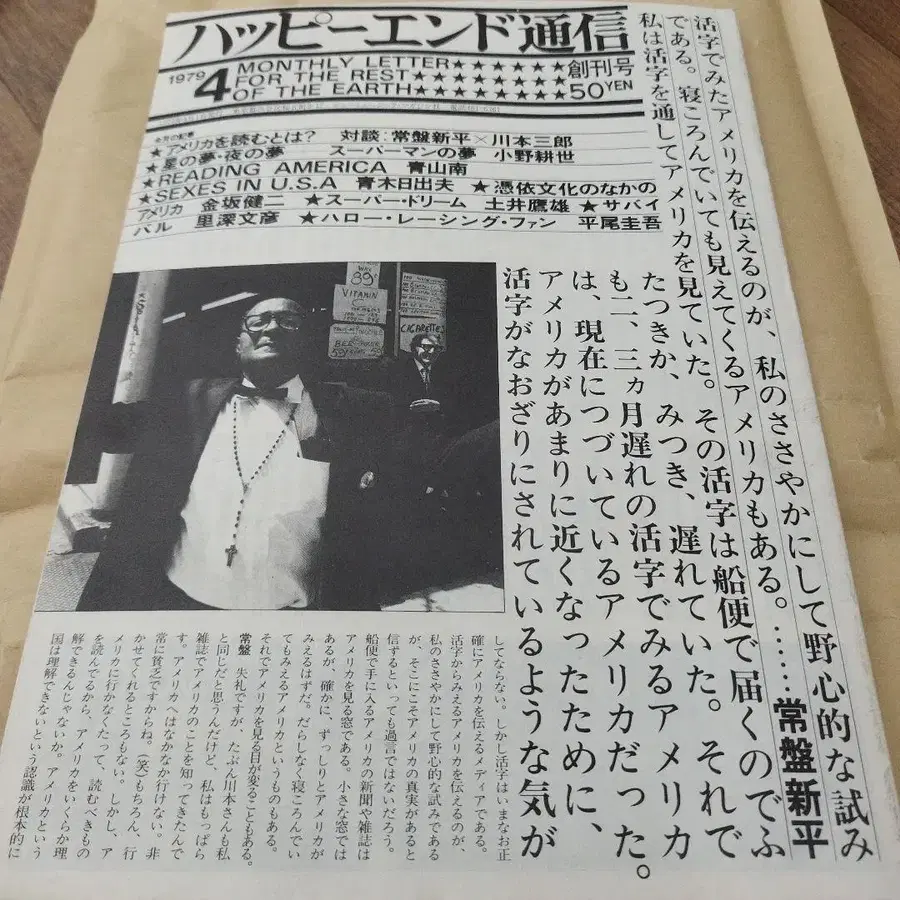 ハッピーエンド通信
1979
4
MONTHLY LETTER★★★★★★
FOR THE REST★★★★★★★
OF THE EARTH★★★★★★★★
創刊号
50YEN
今月の記事
★アメリカを読むとは? 対談:常盤新平×川本三郎
★星の夢・夜の夢 スーパーマンの夢 小野耕世
★READING AMERICA 青山南
★SEXES IN U.S.A 青木日出夫 ★憑依文化のなかの
アメリカ 金坂健二 ★スーパー・ドリーム 土井鷹雄 ★サバイ
バル 里深文彦 ★ハロー・レーシング・ファン 平尾圭吾
活字でみたアメリカを伝えるのが、私のささやかにして野心的な試み
である。寝ころんでいても見えてくるアメリカもある。……常盤新平
私は活字を通してアメリカを見ていた。その活字は船便で届くのでふ
たつきか、みつき、遅れていた。それで
も二、三ヵ月遅れの活字でみるアメリカ
は、現在につづいているアメリカだった。
アメリカがあまりに近くなったために、
活字がなおざりにされているような気が
してならない。しかし活字はいまなお正
確にアメリカを伝えるメディアである。
活字からみえるアメリカを伝えるのが、
私のささやかにして野心的な試みである
が、そこにこそアメリカの真実があると
信ずるといっても過言ではないだろう。
船便で手に入るアメリカの新聞や雑誌は
アメリカを見る窓である。小さな窓では
あるが、確かに、ずっしりとアメリカが
みえるはずだ。だらしなく寝ころんでい
てもみえるアメリカというものもある。
それでアメリカを見る目が変ることもある。
常盤 失礼ですが、たぶん川本さんも私
と同じだと思うんだけど、私はもっぱら
雑誌でアメリカのことを知ってきたんで
す。アメリカへはなかなか行けない。非
常に貧乏ですからね。(笑)もちろん、行
かせてくれるところもない。しかし、ア
メリカに行かなくたって、読むべきもの
を読んでるから、アメリカをいくらか理
解できるんじゃないか。アメリカという
国は理解できないという認識が根本的に
WAX
89¢
VITAMIN
C
CIGARETTES